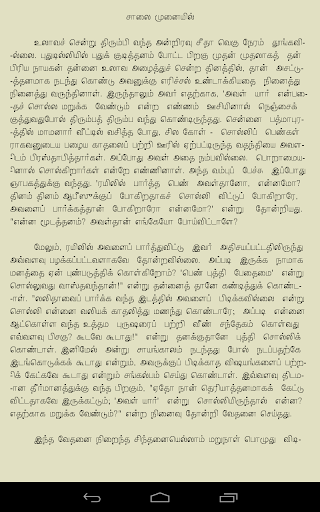 சாலை முனையில்
உலாவச் சென்று திரும்பி வந்த அன்றிரவு சீதா வெகு நேரம் தூங்கவி-
-ல்லை. புதுடில்லியில் புதுக் குடித்தனம் போட்ட பிறகு முதன் முதலாகத் தன்
பிரிய நாயகன் தன்னை உலாவ அழைத்துச் சென்ற தினத்தில், தான் அசட்டு-
-த்தனமாக நடந்து கொண்டு அவனுக்கு எரிச்சல் உண்டாக்கியதை நினைத்து
நினைத்து வருந்தினாள். இருந்தாலும் அவர் எதற்காக, 'அவள் யார் என்பை-
-தச் சொல்ல மறுக்க வேண்டும் என்ற எண்ணம் ஊசியினால் நெஞ்சைக்
குத்துவதுபோல் திரும்பத் திரும்ப வந்து கொண்டிருந்தது. சென்னை பத்மாபுர-
-த்தில் மாமனார் வீட்டில் வசித்த போது, சில கோள் - சொல்லிப் பெண்கள்
ராகவனுடைய பழைய காதலைப் பற்றி ஊரில் ஏற்பட்டிருந்த வதந்தியை அவள-
-ிடம் பிரஸ்தாபித்தார்கள். அப்போது அவள் அதை நம்பவில்லை. பொறாமைய-
-ினால் சொல்கிறார்கள் என்றே எண்ணினாள். அந்த வம்புப் பேச்சு இப்போது
ஞாபகத்துக்கு வந்தது. 'ரயிலில் பார்த்த பெண் அவள்தானோ, என்னமோ?
தினம் தினம் ஆபீஸுக்குப் போகிறதாகச் சொல்லி விட்டுப் போகிறாரே,
அவளைப் பார்க்கத்தான் போகிறாரோ என்னமோ?' என்று தோன்றியது.
"என்ன மூடத்தனம்? அவள்தான் எங்கேயோ போய்விட்டாளே?
மேலும், ரயிலில் அவளைப் பார்த்துவிட்டு இவர் அதிசயப்பட்டதிலிருந்து
அவ்வளவு பழக்கப்பட்டவளாகவே தோன்றவில்லை. அப்படி இருக்க நாமாக
மனத்தை ஏன் புண்படுத்திக் கொள்கிறோம்? 'பெண் புத்தி பேதைமை' என்று
சொல்லுவது வாஸ்தவந்தான்!" என்று தன்னைத் தானே கண்டித்துக் கொண்ட-
-ாள். "லலிதாவைப் பார்க்க வந்த இடத்தில் அவளைப் பிடிக்கவில்லை என்று
சொல்லி என்னை வலியக் காதலித்து மணந்து கொண்டாரே; அப்படி என்னை
ஆட்கொள்ள வந்த உத்தம புருஷரைப் பற்றி வீண் சந்தேகம் கொள்வது
எவ்வளவு பிசகு? கூடவே கூடாது!" என்று தனக்குத்தானே புத்தி சொல்லிக்
கொண்டாள். இனிமேல் அன்று சாயங்காலம் நடந்தது போல் நடப்பதற்கே
இடங்கொடுக்கக் கூடாது என்றும், அவருக்குப் பிடிக்காத விஷயங்களைப் பற்ற-
-ிக் கேட்கவே கூடாது என்றும் சங்கல்பம் செய்து கொண்டாள். இவ்வாறு தீடம-
-ான தீர்மானத்துக்கு வந்த பிறகும், "ஏதோ நான் தெரியாத்தனமாகக் கேட்டு
விட்டதாகவே இருக்கட்டும்; 'அவள் யார்' என்று சொல்லியிருந்தால் என்ன?
எதற்காக மறுக்க வேண்டும்?" என்ற நினைவு தோன்றி வேதனை செய்தது.
இந்த வேதனை நிறைந்த சிந்தனையெல்லாம் மறுநாள் பொழுது விடி-